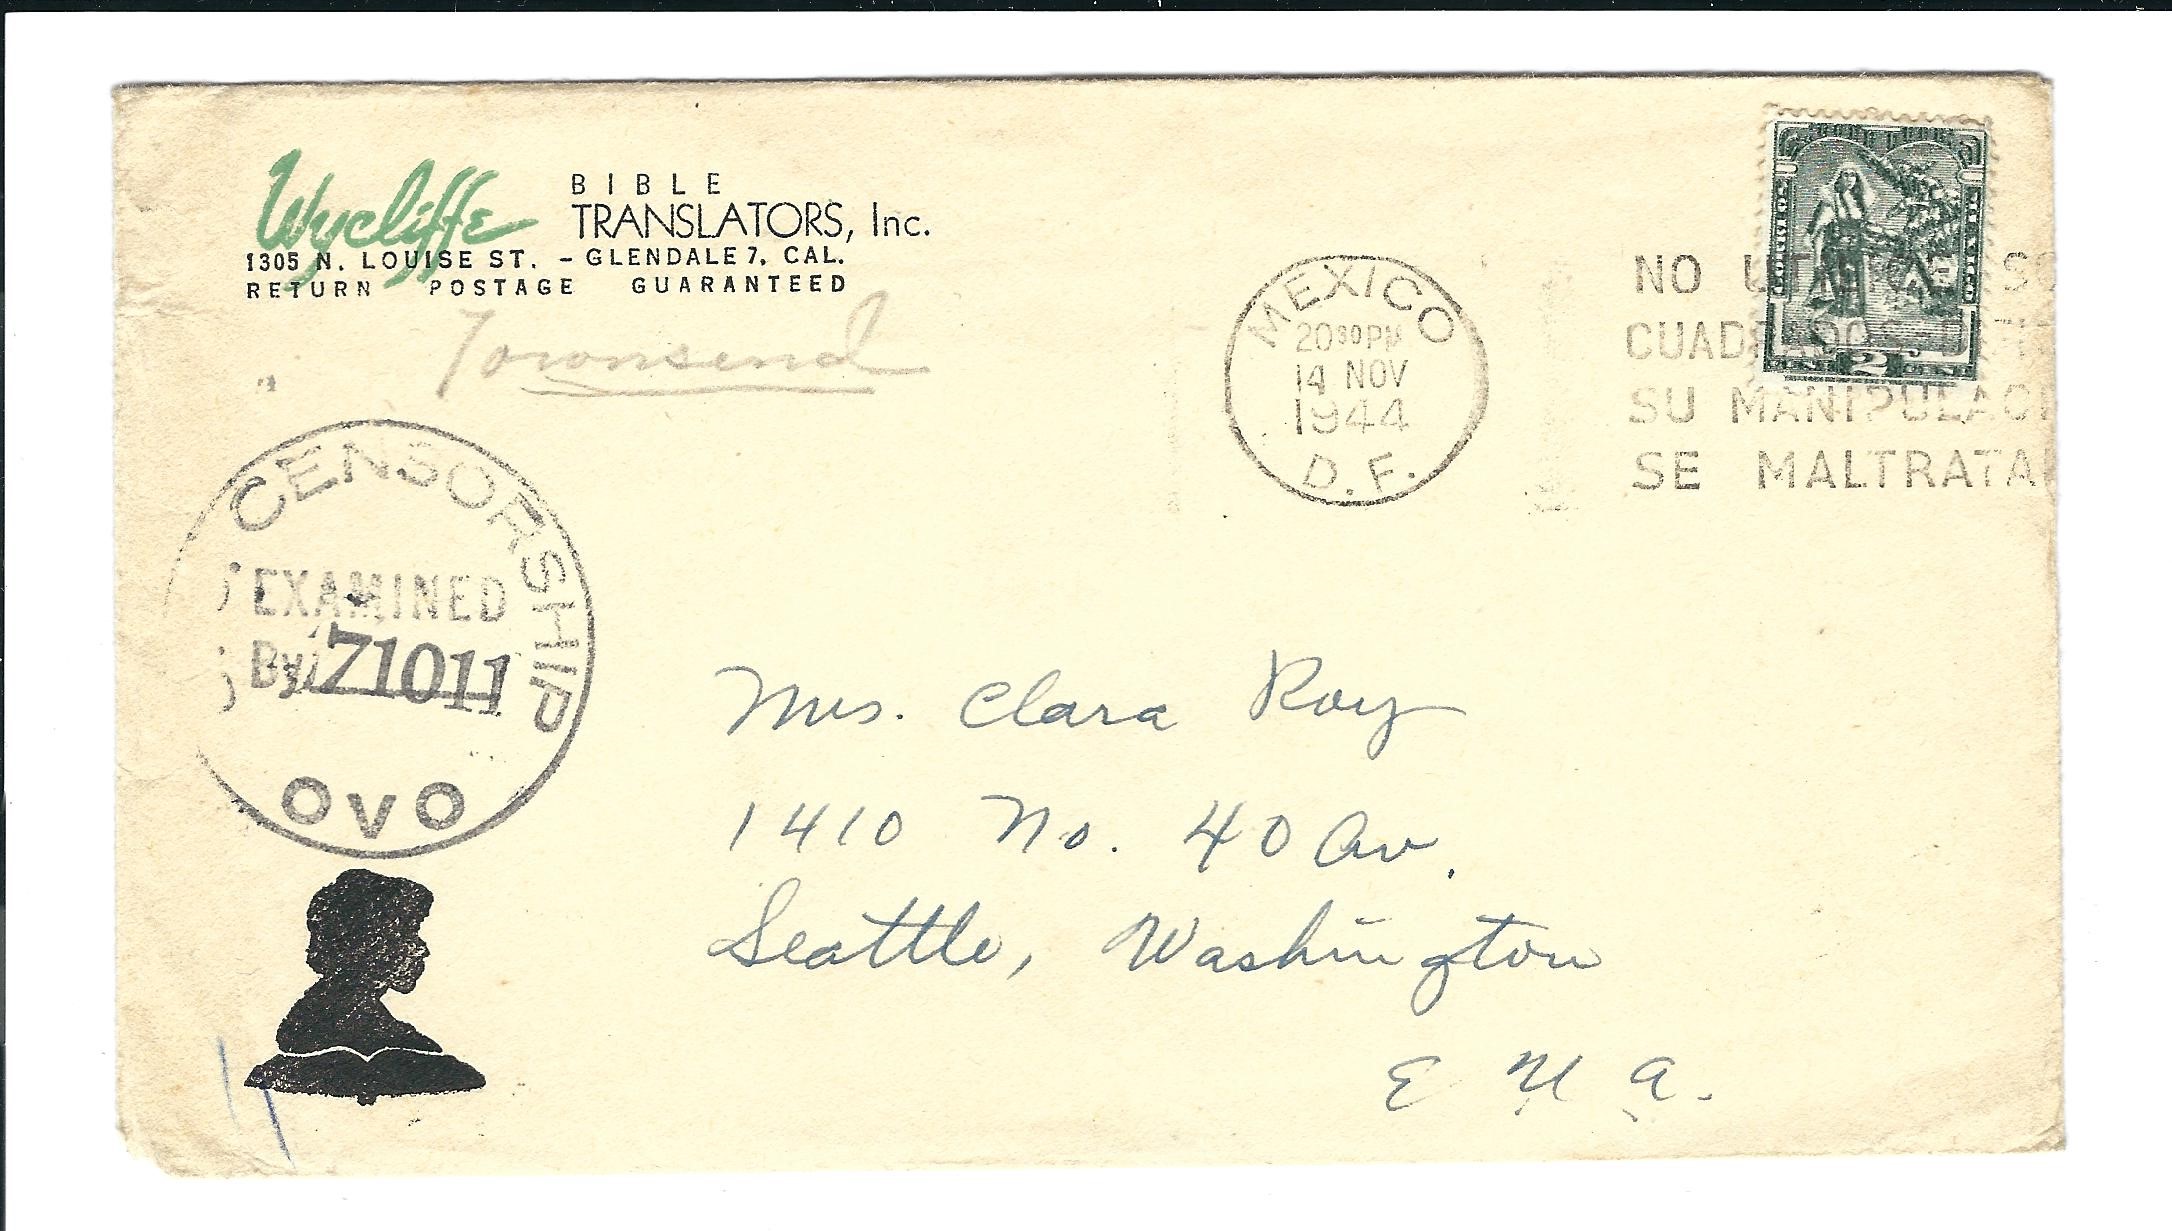 Wycliffe BIBLE
TRANSLATORS, Inc.
1305 N. LOUISE ST. - GLENDALE 7, CAL.
RETURN POSTAGE GUARANTEED
Townsend
MEXICO
20 30 PM
14 NOV
1944
D.F.
NO
CUADRADOS
SU MANIPULACI
SE MALTRATA
2
CENSORSHIP
EXAMINED
By 71011
OVO
Mrs. Clara Roy
1410 No. 40 Av.
Seattle, Washington
E U A.